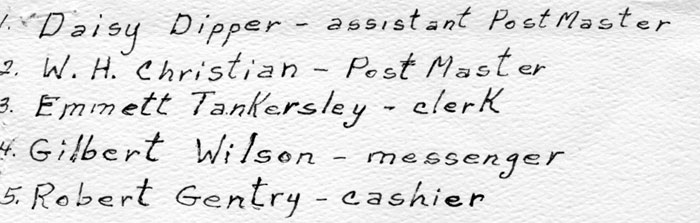 1. Daisy Dipper - assistant PostMaster
2. W. H. Christian - Post Master
3. Emmett Tankersley - clerk
4. Gilbert Wilson - messenger
5. Robert Gentry - cashier